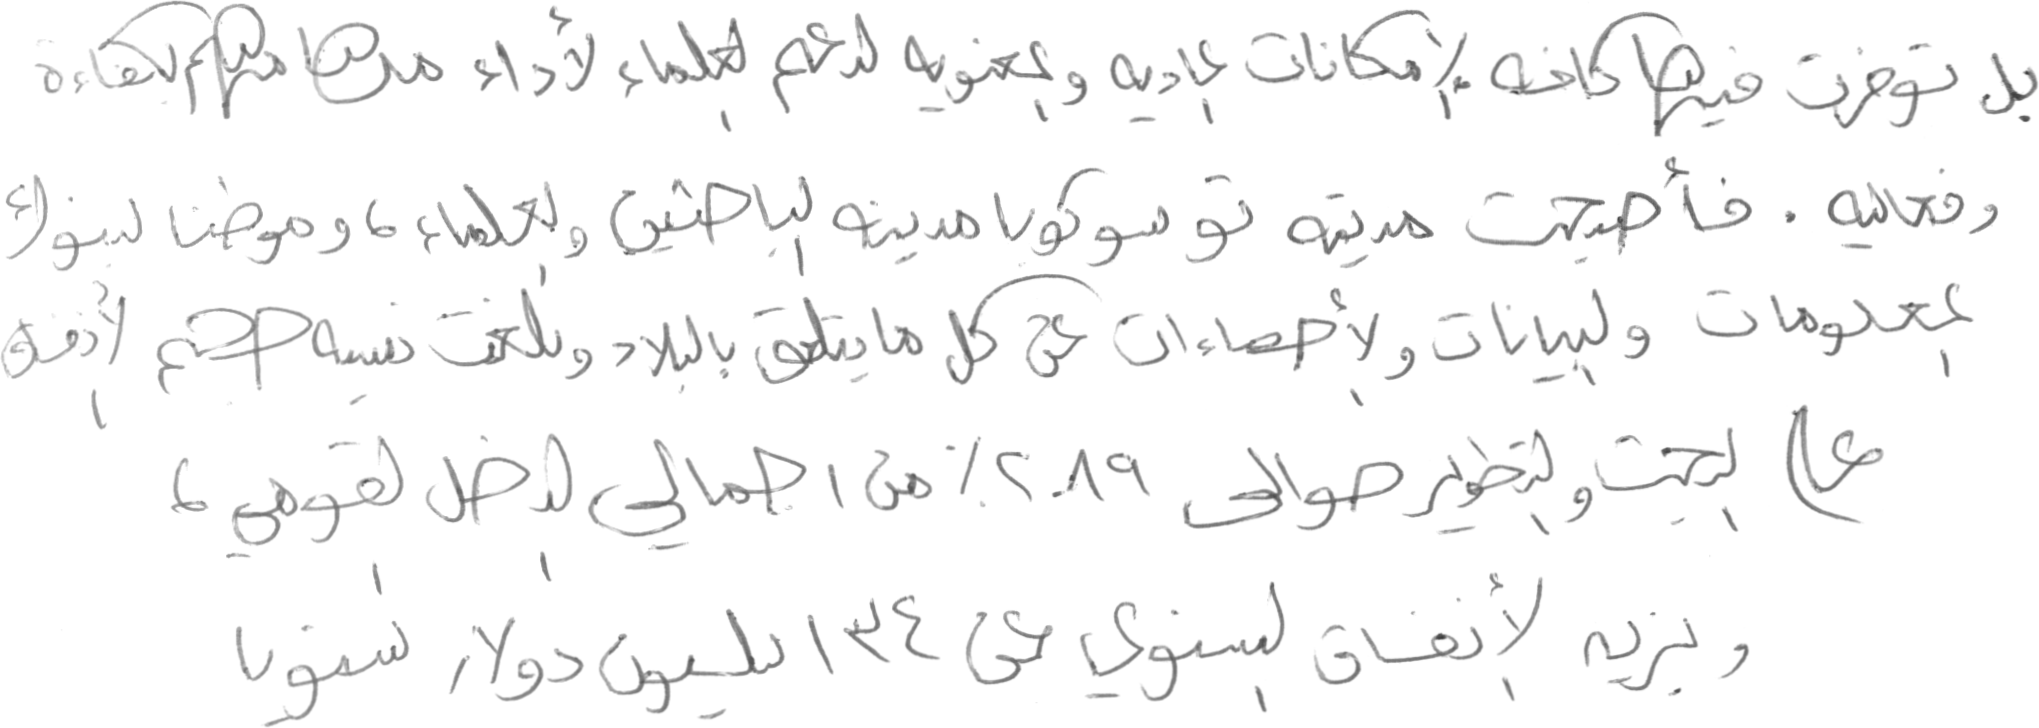 بل توفرت فيها كافه الإمكانات المادية والمعنويه لدعم العلماء لأداء مهامهم بكفاءة
وفعاليه . فأصبحت مدينة تسوكوبا مدينه الباحثين والعلماء ، وموطنا لبنوك
المعلومات والبيانات والأحصاءات عن كل ما يتعلق بالبلاد وبلغت نسبه حجم الأنفاق
على البحث والتطوير حوالى ٢.٨٩٪ من اجمالي الدخل القومي ،
ويزيد الأنفاق السنوي عن ١٣٤ بليون دولار سنويا